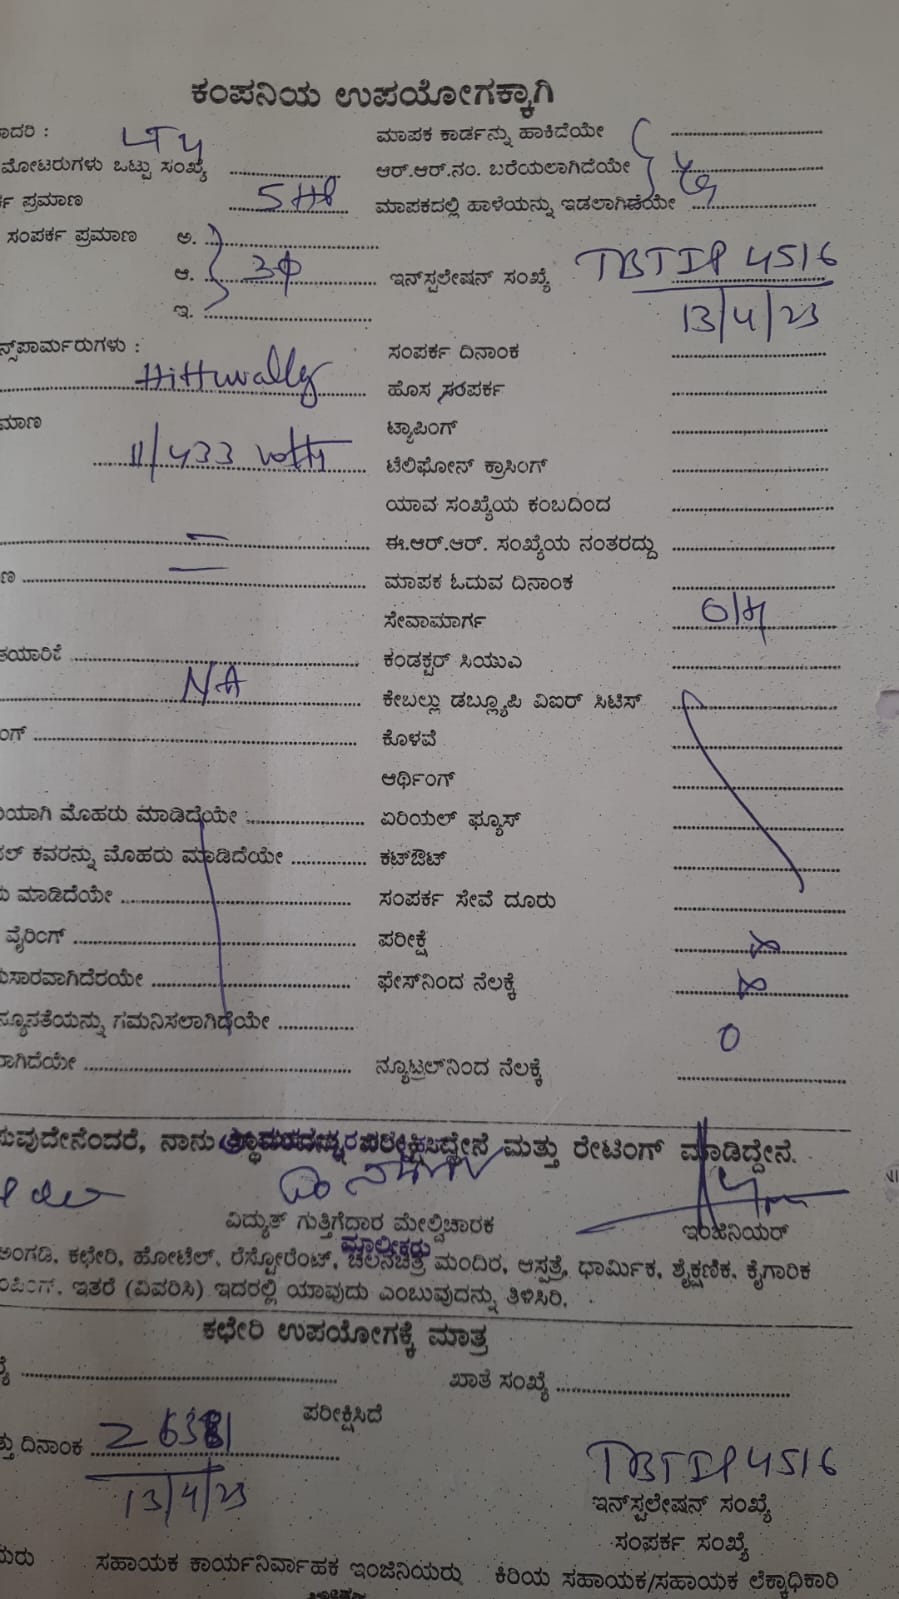 ಕಂಪನಿಯ ಉಪಯೋಗಕ್ಕಾಗಿ
ಾದರಿ : ಮಾಪಕ ಕಾರ್ಡನ್ನು ಹಾಕಿದೆಯೇ
ಮೋಟರುಗಳು ಒಟ್ಟು ಸಂಖ್ಯೆ ಆರ್.ಆರ್.ನಂ. ಬರೆಯಲಾಗಿದೆಯೇ
ಪ್ರಮಾಣ 5HP ಮಾಪಕದಲ್ಲಿ ಹಾಳೆಯನ್ನು ಇಡಲಾಗಿದೆಯೇ
ಸಂಪರ್ಕ ಪ್ರಮಾಣ ಅ.
ಆ. 3ф ಇನ್‌ಸ್ಟಲೇಷನ್ ಸಂಖ್ಯೆ TBTIP 4516
ಇ. 13/4/23
ನ್ಸ್‌ಪಾರ್ಮರುಗಳು : ಸಂಪರ್ಕ ದಿನಾಂಕ
Hittuvally ಹೊಸ ಸಂಪರ್ಕ
ಮಾಣ ಟ್ಯಾಪಿಂಗ್
11/433 volts ಟೆಲಿಫೋನ್ ಕ್ರಾಸಿಂಗ್
ಯಾವ ಸಂಖ್ಯೆಯ ಕಂಬದಿಂದ
ಈ.ಆರ್.ಆರ್. ಸಂಖ್ಯೆಯ ನಂತರದ್ದು
ಣ ಮಾಪಕ ಓದುವ ದಿನಾಂಕ
ಸೇವಾಮಾರ್ಗ O/H
ತಯಾರಿಕೆ ಕಂಡಕ್ಟರ್ ಸಿಯುಎ
NA ಕೇಬಲ್ಲು ಡಬ್ಲ್ಯೂಪಿ ವಿಐರ್ ಸಿಟಿಸ್
ಂಗ್ ಕೊಳವೆ
ಆರ್ಥಿಂಗ್
ಿಯಾಗಿ ಮೊಹರು ಮಾಡಿದೆಯೇ ಏರಿಯಲ್ ಫ್ಯೂಸ್
ಲ್ ಕವರನ್ನು ಮೊಹರು ಮಾಡಿದೆಯೇ ಕಟ್‌ಔಟ್
ಮಾಡಿದೆಯೇ ಸಂಪರ್ಕ ಸೇವೆ ದೂರು
ವೈರಿಂಗ್ ಪರೀಕ್ಷೆ
ುಸಾರವಾಗಿದೆರಯೇ ಫೇಸ್‌ನಿಂದ ನೆಲಕ್ಕೆ
ನ್ಯೂನತೆಯನ್ನು ಗಮನಿಸಲಾಗಿದೆಯೇ 0
ಾಗಿದೆಯೇ ನ್ಯೂಟ್ರಲ್‌ನಿಂದ ನೆಲಕ್ಕೆ
ಸುವುದೇನೆಂದರೆ, ನಾನು ಪರೀಕ್ಷಿಸಿದ್ದೇನೆ ಮತ್ತು ರೇಟಿಂಗ್ ಮಾಡಿದ್ದೇನೆ.
ವಿದ್ಯುತ್ ಗುತ್ತಿಗೆದಾರ ಮೇಲ್ವಿಚಾರಕ ಇಂಜಿನಿಯರ್
ಮಾಲೀಕರು
ಅಂಗಡಿ, ಕಛೇರಿ, ಹೋಟೆಲ್, ರೆಸ್ಟೋರೆಂಟ್, ಚಲನಚಿತ್ರ ಮಂದಿರ, ಆಸ್ಪತ್ರೆ, ಧಾರ್ಮಿಕ, ಶೈಕ್ಷಣಿಕ, ಕೈಗಾರಿಕ
ಂಪಿಂಗ್, ಇತರೆ (ವಿವರಿಸಿ) ಇದರಲ್ಲಿ ಯಾವುದು ಎಂಬುವುದನ್ನು ತಿಳಿಸಿರಿ.
ಕಛೇರಿ ಉಪಯೋಗಕ್ಕೆ ಮಾತ್ರ
ಖಾತೆ ಸಂಖ್ಯೆ
ಪರೀಕ್ಷಿಸಿದೆ
ತು ದಿನಾಂಕ
13/4/23 TBTIP 4516
ಇನ್‌ಸ್ಟಲೇಷನ್ ಸಂಖ್ಯೆ
ಸಂಪರ್ಕ ಸಂಖ್ಯೆ
ಯರು ಸಹಾಯಕ ಕಾರ್ಯನಿರ್ವಾಹಕ ಇಂಜಿನಿಯರು ಕಿರಿಯ ಸಹಾಯಕ/ಸಹಾಯಕ ಲೆಕ್ಕಾಧಿಕಾರಿ